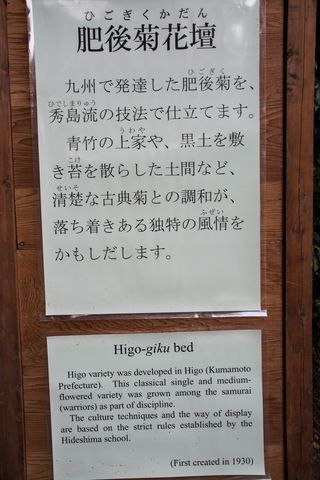 ひごぎくかだん
肥後菊花壇
ひごぎく
九州で発達した肥後菊を、
ひでしまりゅう
秀島流の技法で仕立てます。
うわや
青竹の上家や、黒土を敷
こけ
き苔を散らした土間など、
せいそ
清楚な古典菊との調和が、
ふぜい
落ち着きある独特の風情を
かもしだします。
Higo-giku bed
Higo variety was developed in Higo (Kumamoto
Prefecture). This classical single and medium-
flowered variety was grown among the samurai
(warriors) as part of discipline.
The culture techniques and the way of display
are based on the strict rules established by the
Hideshima school.
(First created in 1930)